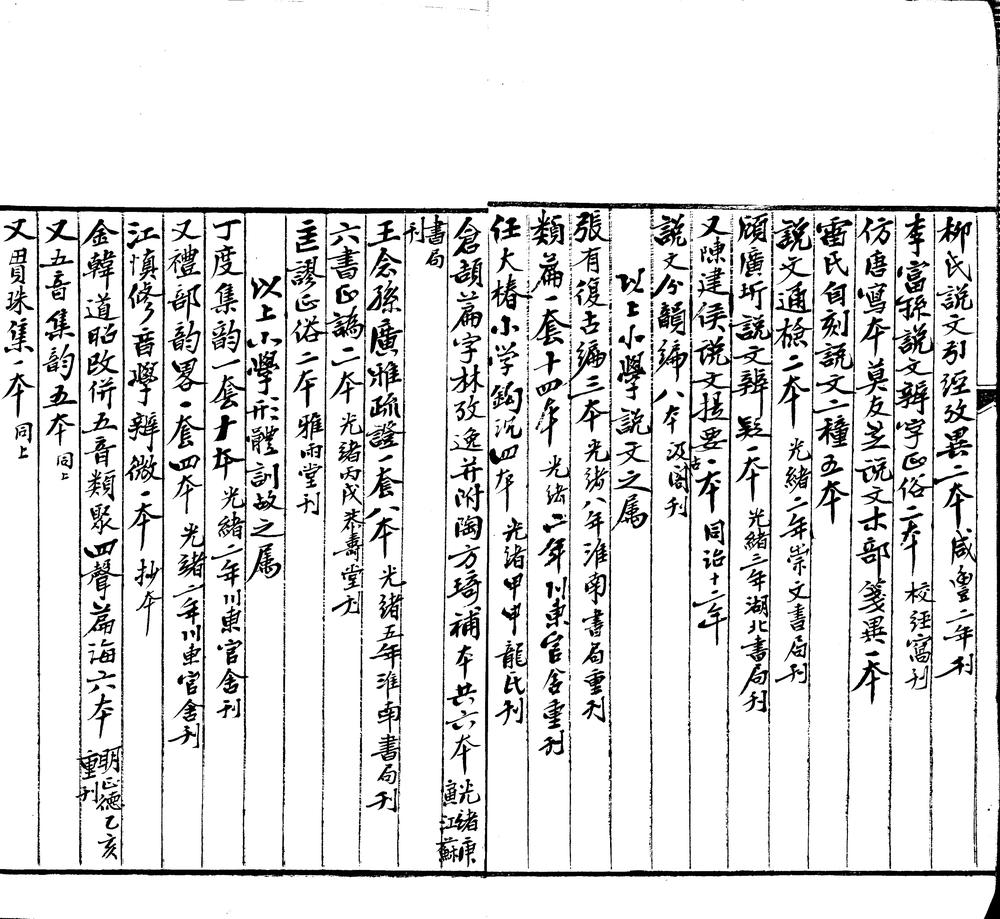 柳氏說文引經攷異二本 咸豐二年刊
李富孫說文辨字正俗二本 校經廎刊
仿唐寫本莫友芝說文木部箋異一本
雷氏自刻說文二種五本
說文通檢二本 光緒二年崇文書局刊
頋廣圻說文辨疑一本 光緒三年湖北書局刊
又陳建侯說文提要一本 同治十二年
說文分韻編八本 汲古閣刊
以上小學說文之属
張有復古編三本 光緒八年淮南書局重刊
類篇一套十四本 光緒二年川東官舍重刊
任大椿小学鈎沉四本 光緒甲申龍氏刊
倉頡篇字林攷逸并附陶方琦補本共六本 光緒庚寅江蘇
書局刊
王念孫廣雅疏證一套八本 光緒五年淮南書局刊
六書正譌二本 光緒丙戌恭壽堂刊
匡謬正俗二本 雅雨堂刊
以上小學形體訓故之属
丁度集韵一套十本 光緒二年川東官舍刊
又禮部韵畧一套四本 光緒二年川東官舍刊
江慎修音學辨微一本 抄本
金韓道昭改併五音類聚四聲篇海六本 明正德乙亥重刊
又五音集韵五本 同上
又貫珠集一本 同上